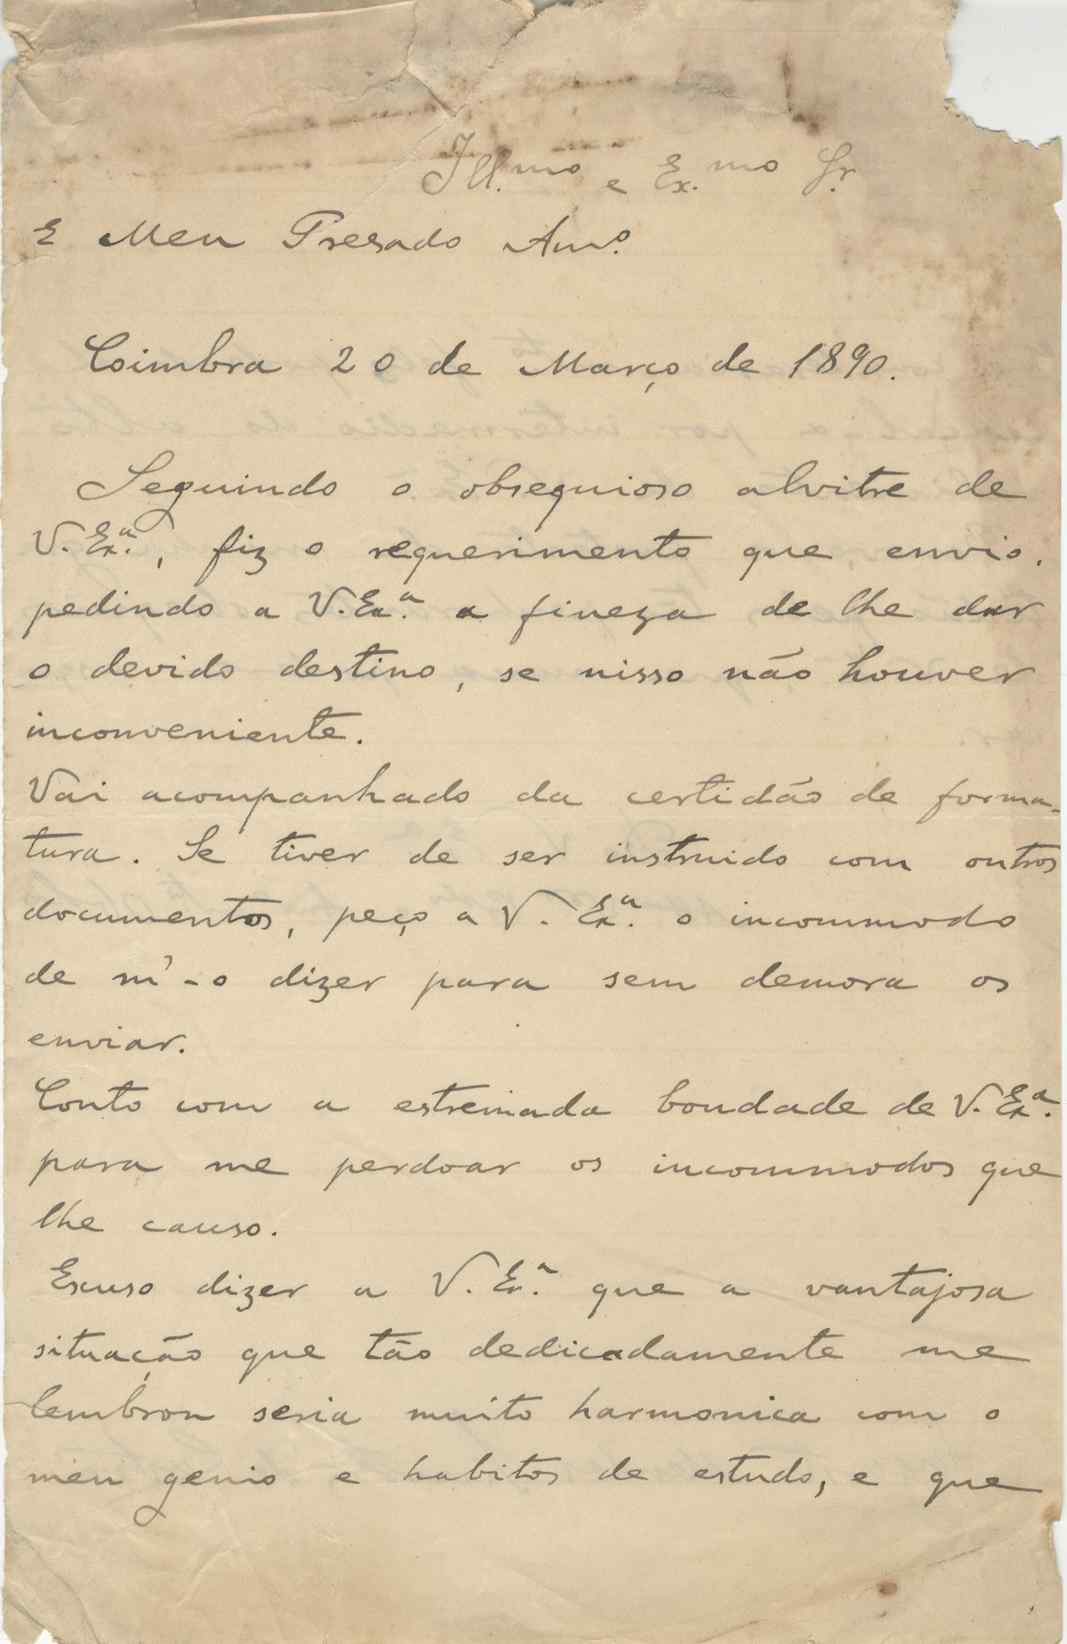 Ill.mo e Ex.mo Sr.
E Meu Presado Am.º
Coimbra 20 de Março de 1890.
Seguindo o obsequioso alvitre de
V. Ex.ª, fiz o requerimento que envio,
pedindo a V. Ex.ª a fineza de lhe dar
o devido destino, se nisso não houver
inconveniente.
Vai acompanhado da certidão de forma-
tura. Se tiver de ser instruido com outros
documentos, peço a V. Ex.ª o incommodo
de m'-o dizer para sem demora os
enviar.
Conto com a estremada bondade de V. Ex.ª
para me perdoar os incommodos que
lhe causo.
Escuso dizer a V. Ex.ª que a vantajosa
situação que tão dedicadamente me
lembrou seria muito harmonica com o
meu genio e habitos de estudo, e que